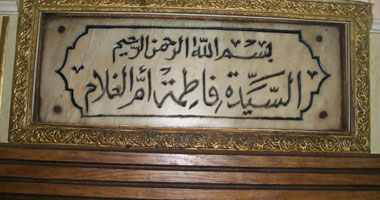 بسم الله الرحمن الرحيم
السيدة فاطمة أم الغلام